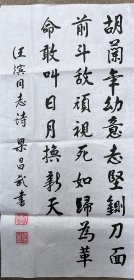 胡蘭年幼意志堅鍘刀面
前斗敌頑視死如歸為革
命敢叫日月換新天
汪滨同志詩 梁昌武書